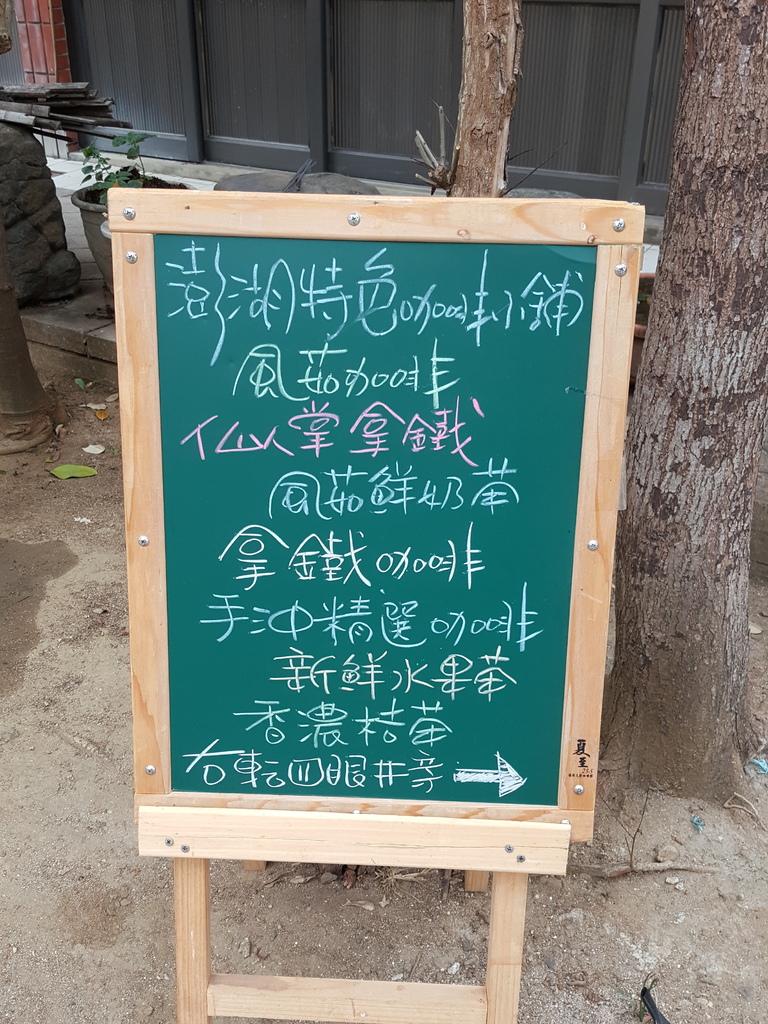 澎湖特色咖啡小舖
風茹咖啡
仙人掌拿鐵
風茹鮮奶茶
拿鐵咖啡
手沖精選咖啡
新鮮水果茶
香濃桔茶
右転四眼井旁
夏至